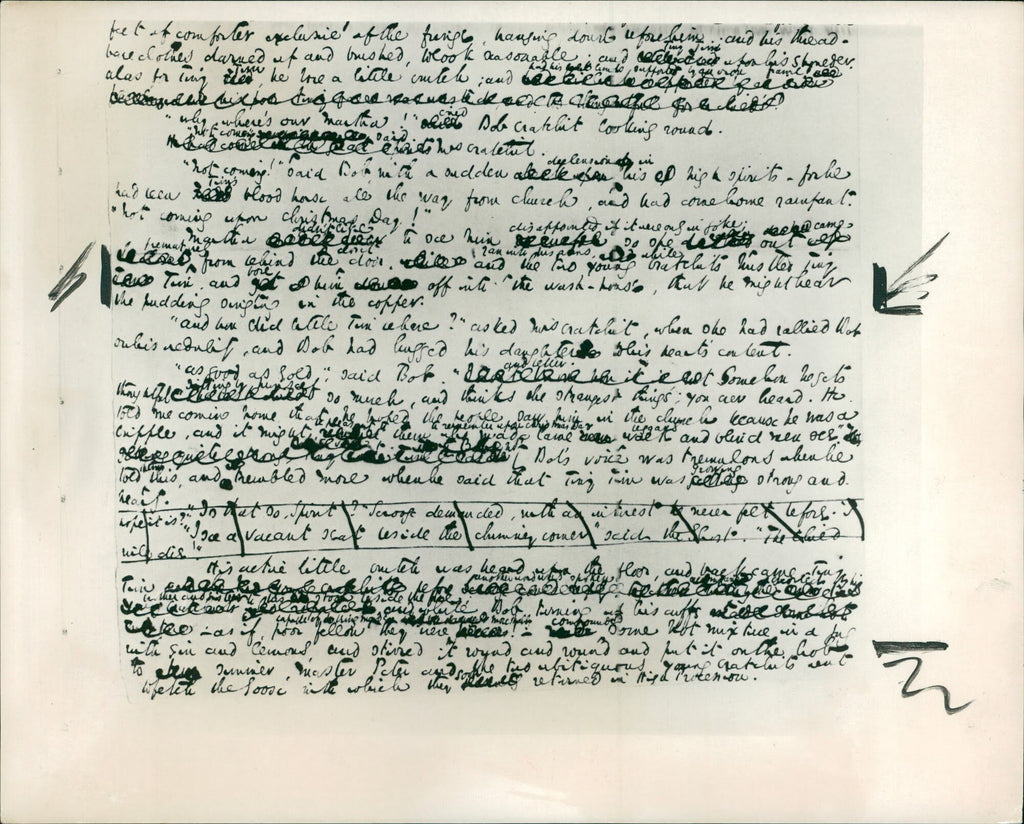 feet of comforter exclusive of the fringe, hanging down before him; and his thread-
bare clothes darned up and brushed, to look seasonable; and Tiny Tim upon his shoulder.
alas for Tiny Tim he bore a little crutch, and had his little limbs supported by an iron frame!
"Why, where's our Martha!" cried Bob Cratchit looking round.
"Not coming" said Mrs Cratchit.
"Not coming!" said Bob, with a sudden declension in his high spirits – for he
had been Tim's blood horse all the way from church, and had come home rampant.
"Not coming upon Christmas Day!"
Martha didn't like to see him disappointed, if it were only in joke; so she came
out
prematurely from behind the closet door, and ran into his arms, while the two young Cratchits hustled Tiny
Tim, and bore him off into the wash-house, that he might hear
the pudding singing in the copper.
"and how did little Tim behave?" asked Mrs Cratchit, when she had rallied Bob
on his credulity, and Bob had hugged his daughter to his heart's content.
"as good as gold," said Bob, "and better. Somehow he gets
thoughtful sitting by himself so much, and thinks the strangest things you ever heard. He
told me coming home that he hoped the people saw him in the church because he was a
cripple, and it might be pleasant to them to remember upon Christmas Day who made lame beggars walk and blind men see."
Bob's voice was tremulous when he
told them this, and trembled more when he said that Tiny Tim was growing strong and
hearty.
"Is that so, Spirit?" Scrooge demanded, with an interest he never felt before. "I
hope it is."
"I see a vacant seat beside the chimney corner" said the Ghost. "The child
will die!"
His active little crutch was heard upon the floor, and back came Tiny
Tim before another word was spoken, escorted by his
brother and sister to his stool beside the fire; and while Bob, turning up his cuffs
– as if, poor fellow they were capable of being made more shabby – compounded some hot mixture in a jug
with gin and lemons, and stirred it round and round and put it on the hob
to simmer, Master Peter and the two ubiquitous young Cratchits went
to fetch the Goose with which they soon returned in High Procession.